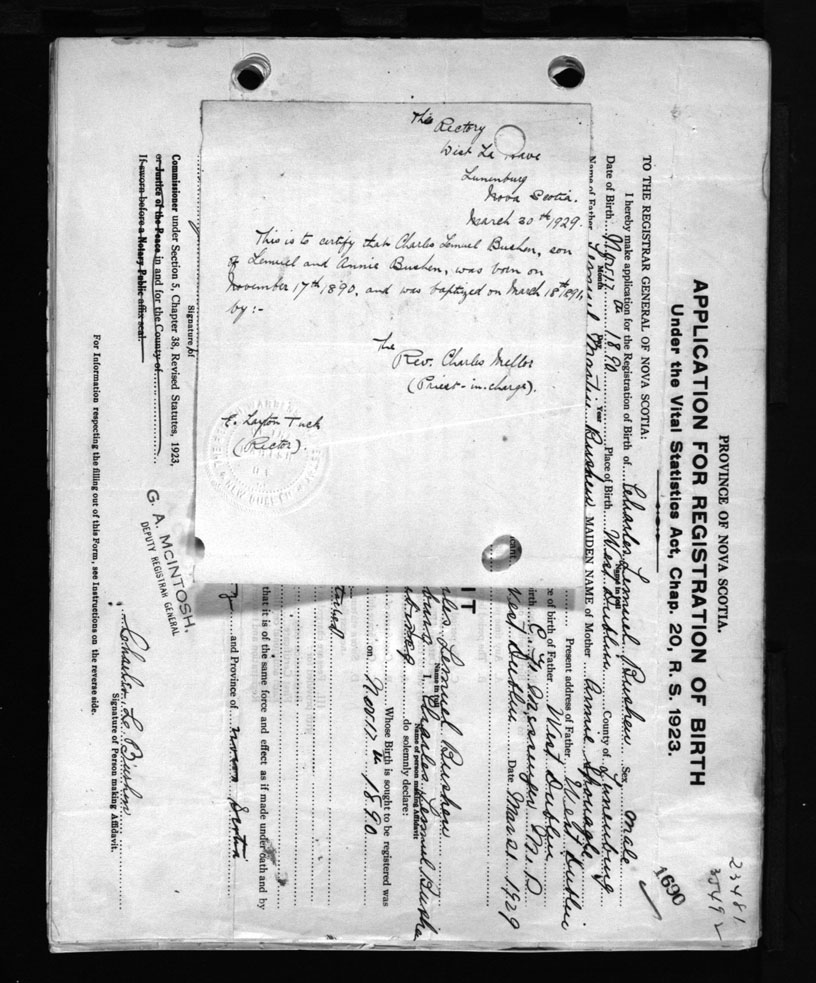 The
Rectory
West La Have
Lunenburg
Nova Scotia.
March 30th 1929.
This is to certify that Charles Lemuel Bushen, son
of Lemuel and Annie Bushen, was born on
November 17th 1890, and was baptized on March 18th 1891,
by:-
The
Rev. Charles Mellor
(Priest-in-charge).
E. Layton Tuck
(Rector).
PROVINCE OF NOVA SCOTIA.
APPLICATION FOR REGISTRATION OF BIRTH
Under the Vital Statistics Act, Chap. 20, R. S. 1923.
23481
35492
1690
TO THE REGISTRAR GENERAL OF NOVA SCOTIA:
I hereby make application for the Registration of Birth of Charles Lemuel Bushen Sex male
Name in full
Date of Birth Nov 17 th 1890 Place of Birth West Dublin County of Lunenburg
Month Day Year
Name of Father Lemuel Bushen MAIDEN NAME of Mother Annie Sponagle
Present address of Father West Dublin
e of birth of Father West Dublin
irth M.D.
West Dublin Date Mar 21 1929
cant.
IT
rles Lemuel Bushen
Name in full
I, Charles Lemuel Bushen
Name of person making Affidavit
do solemnly declare:
Whose Birth is sought to be registered was
on Nov 17 th 1890.
that it is of the same force and effect as if made under oath and by
and Province of Nova Scotia
Charles L. Bushen
Signature of Person making Affidavit.
Signature of
Commissioner under Section 5, Chapter 38, Revised Statutes, 1923,
or Justice of the Peace in and for the County of
If sworn before a Notary Public affix seal.
G. A. MCINTOSH.
DEPUTY REGISTRAR GENERAL
For Information respecting the filling out of this Form, see Instructions on the reverse side.